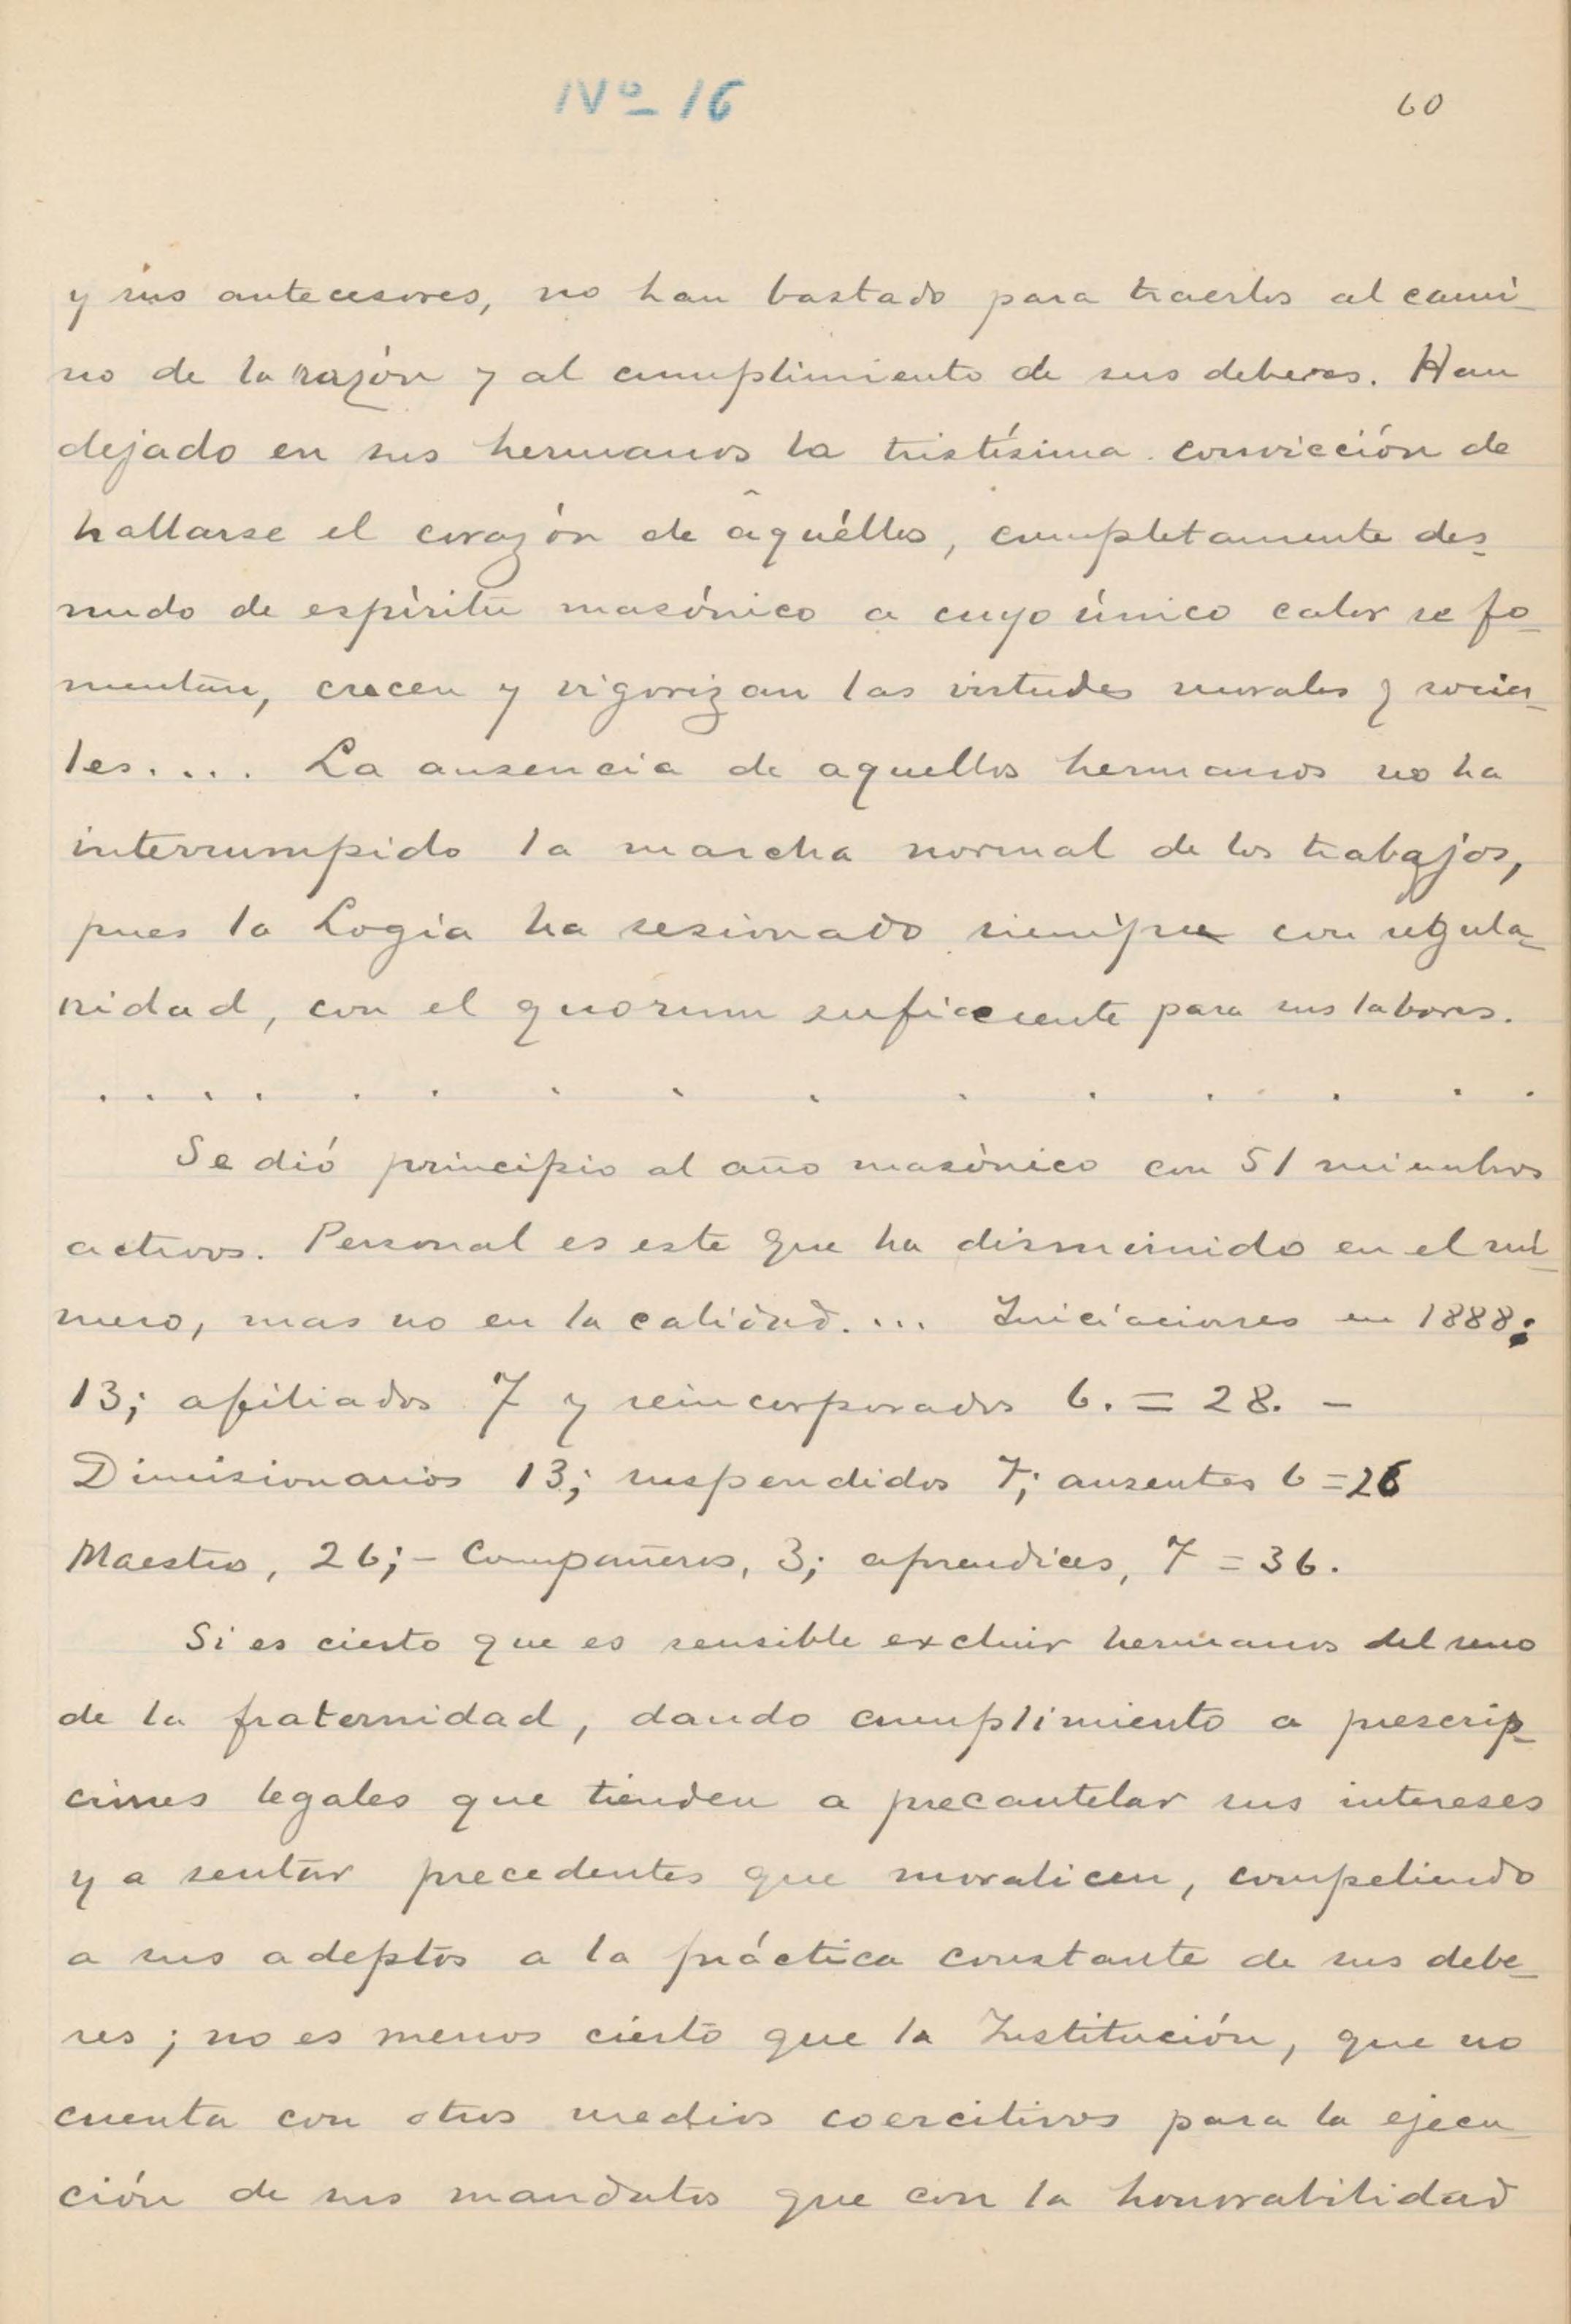 Nº 16
60
y sus antecesores, no han bastado para traerlos al cami-
no de la razón y al cumplimiento de sus deberes. Han
dejado en sus hermanos la tristísima convicción de
hallarse el corazón de aquéllos, completamente des-
nudo de espíritu masónico a cuyo único calor se fo-
mentan, crecen y vigorizan las virtudes morales y socia-
les.... La ausencia de aquellos hermanos no ha
interrumpido la marcha normal de los trabajos,
pues la Logia ha sesionado siempre con regula-
ridad, con el quorum suficiente para sus labores.
. . . . . . . . . . . . . . .
Se dió principio al año masónico con 51 miembros
activos. Personal es este que ha disminuido en el nú-
mero, mas no en la calidad.... Iniciaciones en 1888:
13; afiliados 7 y reincorporados 6. = 28. -
Dimisionarios 13; suspendidos 7; ausentes 6 = 26
Maestros, 26; - Compañeros, 3; aprendices, 7 = 36.
Si es cierto que es sensible excluir hermanos del seno
de la fraternidad, dando cumplimiento a prescrip-
ciones legales que tienden a precautelar sus intereses
y a sentar precedentes que moralicen, compeliendo
a sus adeptos a la práctica constante de sus debe-
res; no es menos cierto que la Institución, que no
cuenta con otros medios coercitivos para la ejecu-
ción de sus mandatos que con la honorabilidad